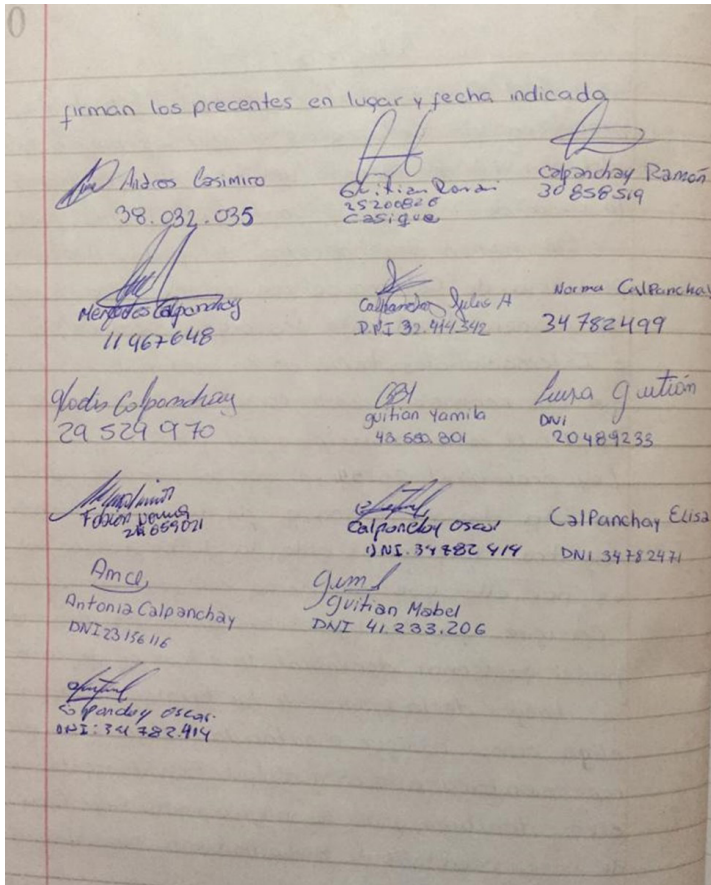 firman los precentes en lugar y fecha indicada
Andres Casimiro
38.032.035
Guitian Roman
25200826
Casique
Calpanchay Ramón
30858519
Mercedes Calpanchay
11967648
Calpanchay Julio A
D.N.I 32.414.342
Norma Calpanchay
34782499
Gladis Calpanchay
29 529 970
guitian Yamila
43.660.801
Luisa Guitián
DNI
20489233
Fabian
Calpanchay Oscar
DNI. 34782414
CalPanchay Elisa
DNI 34782471
Amce
Antonia Calpanchay
DNI 23156116
Guitian Mabel
DNI 41.233.206
Calpanchay Oscar.
DNI: 34.782.414